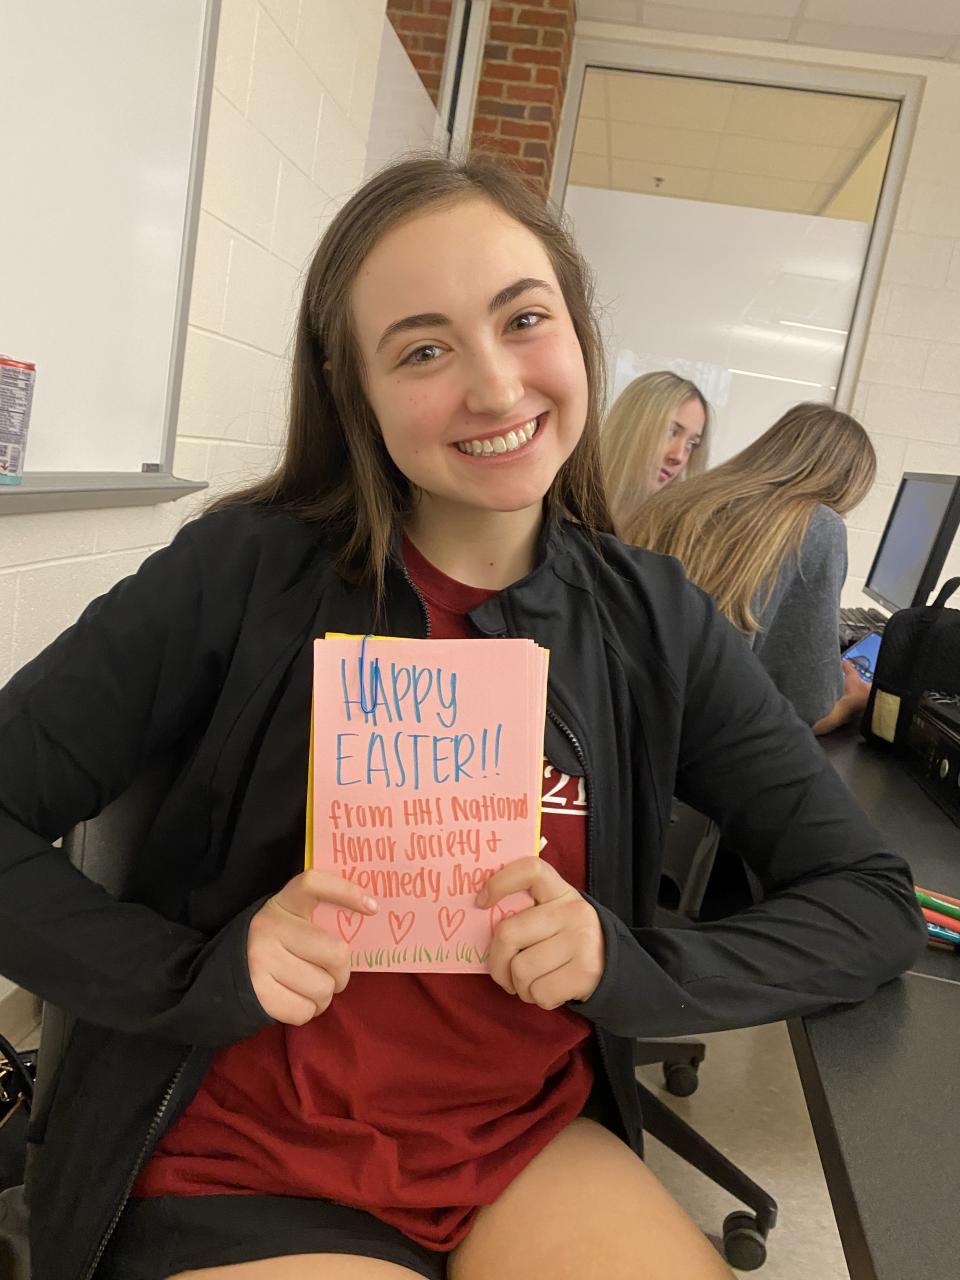 HAPPY
EASTER!!
from HHS National
Honor Society +
Kennedy